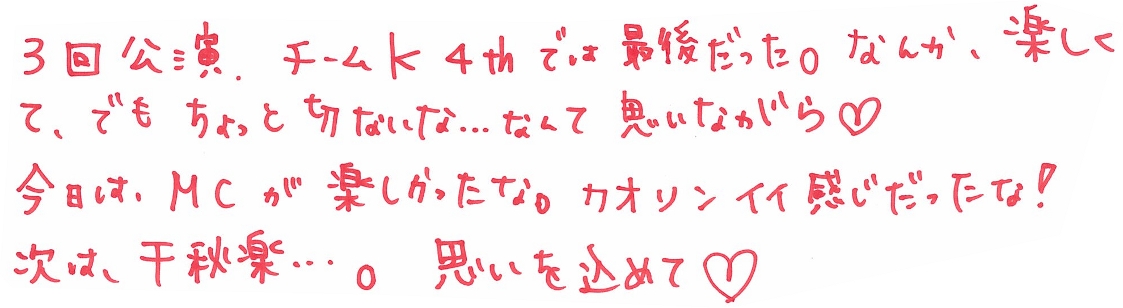 3回公演. チームK 4thでは最後だった。なんか、楽しく
て、でもちょっと切ないな…なんて思いながら♡
今日は、MCが楽しかったな。カオリンイイ感じだったな!
次は、千秋楽…。 思いを込めて♡